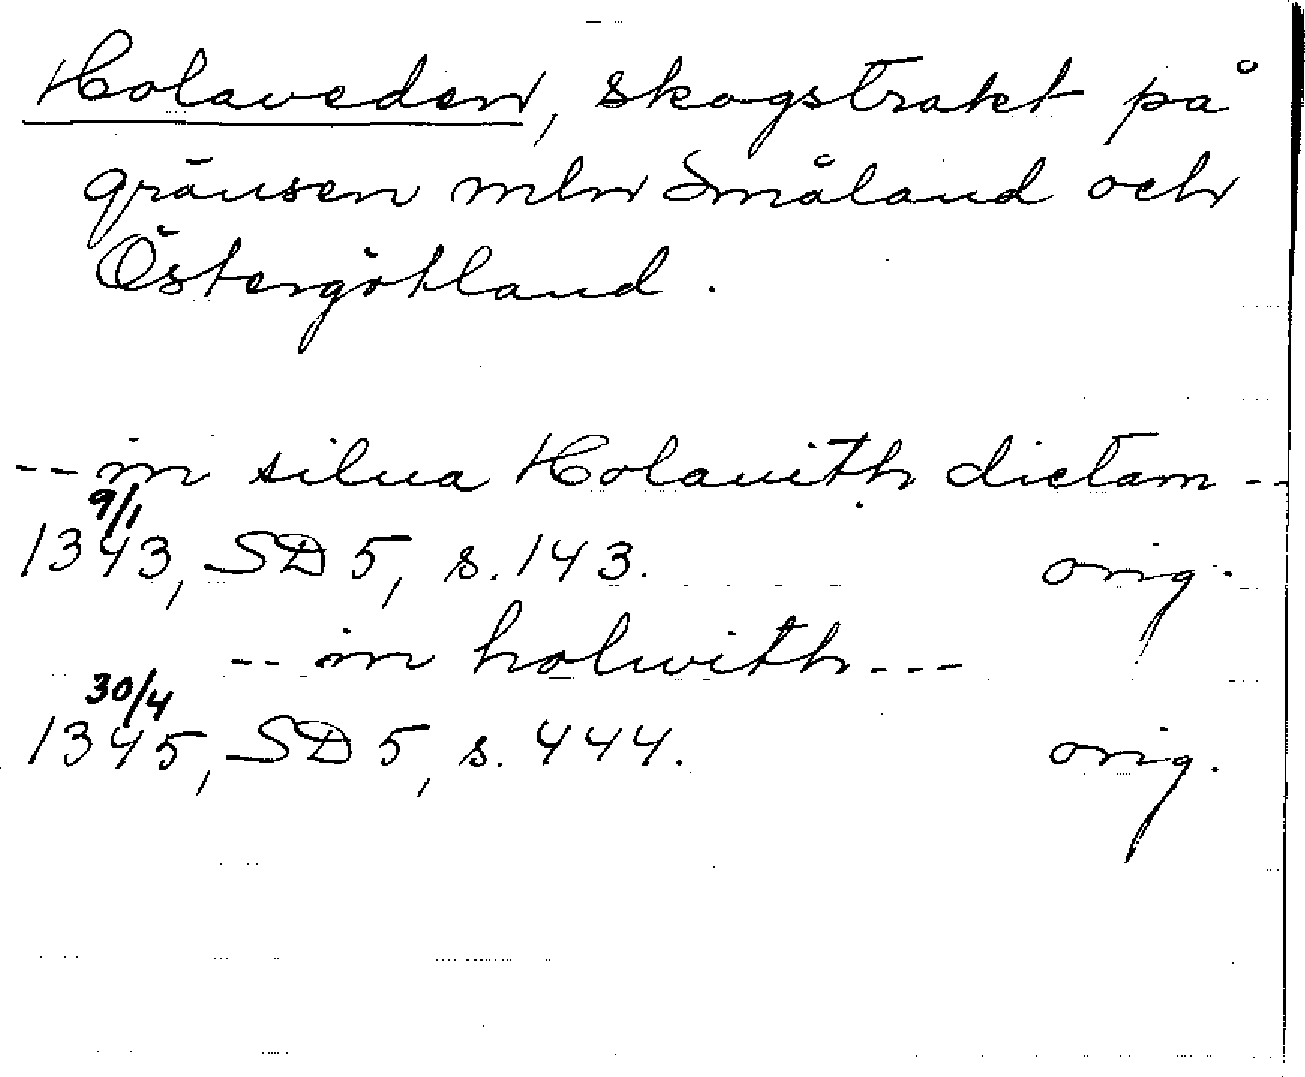 Holaveden, skogstrakt på
gränsen mln Småland och
Östergötland.
-- in silua Holauith dictam --
9/1
1343, SD 5, s. 143. orig.
-- in holwith ---
30/4
1345, SD 5, s. 444. orig.